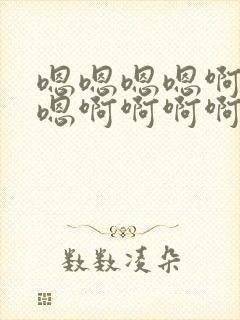 嗯嗯嗯嗯啊
嗯啊啊啊啊
数数凌朵